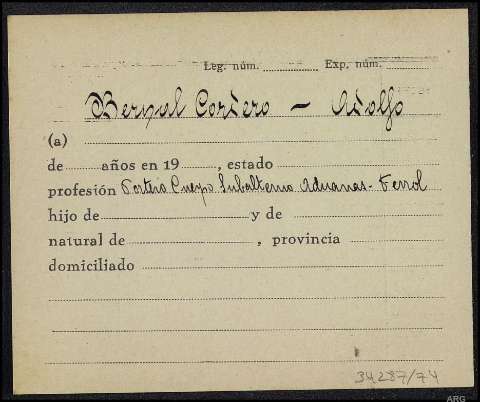 Leg. núm. Exp. núm.
Bernal Cordero - Adolfo
(a)
de años en 19 , estado
profesión Portero Cuerpo Subalterno Aduanas - Ferrol
hijo de y de
natural de , provincia
domiciliado
34287/74
ARG